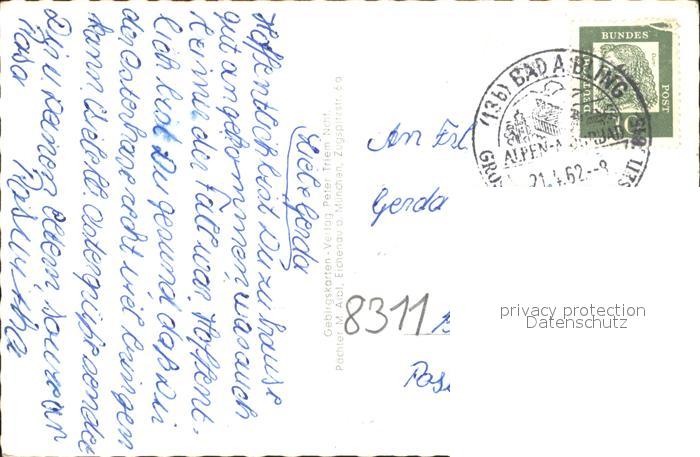 Liebe Gerda
Hoffentlich bist Du zuhause
gut angekommen was auch
bei mir der Fall war. Hoffent-
lich bist Du gesund daß Dir
der Osterhase recht viel bringen
kann. Viele lb Ostergrüße sendet
Dir u Deinen Eltern, sowie
Rosa
Roswitha
Gebirgskarten-Verlag Peter Triem Nchf.
Pächter M. Aibl, Eichenau b. München, Zugspitzstr. 6a
An Frl
Gerda
8311
BUNDES
POST
(13b) BAD AIBLING
ALPEN-MOORBAD
21.4.62.--8
privacy protection
Datenschutz